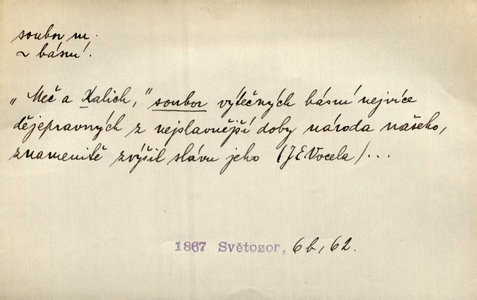 soubor m.
~ básní.
„Meč a Kalich," soubor výtečných básní nejvíce
dějepravných z nejslavnější doby národa našeho,
znamenitě zvýšil slávu jeho (JEVocela)...
1867 Světozor, 6b, 62.